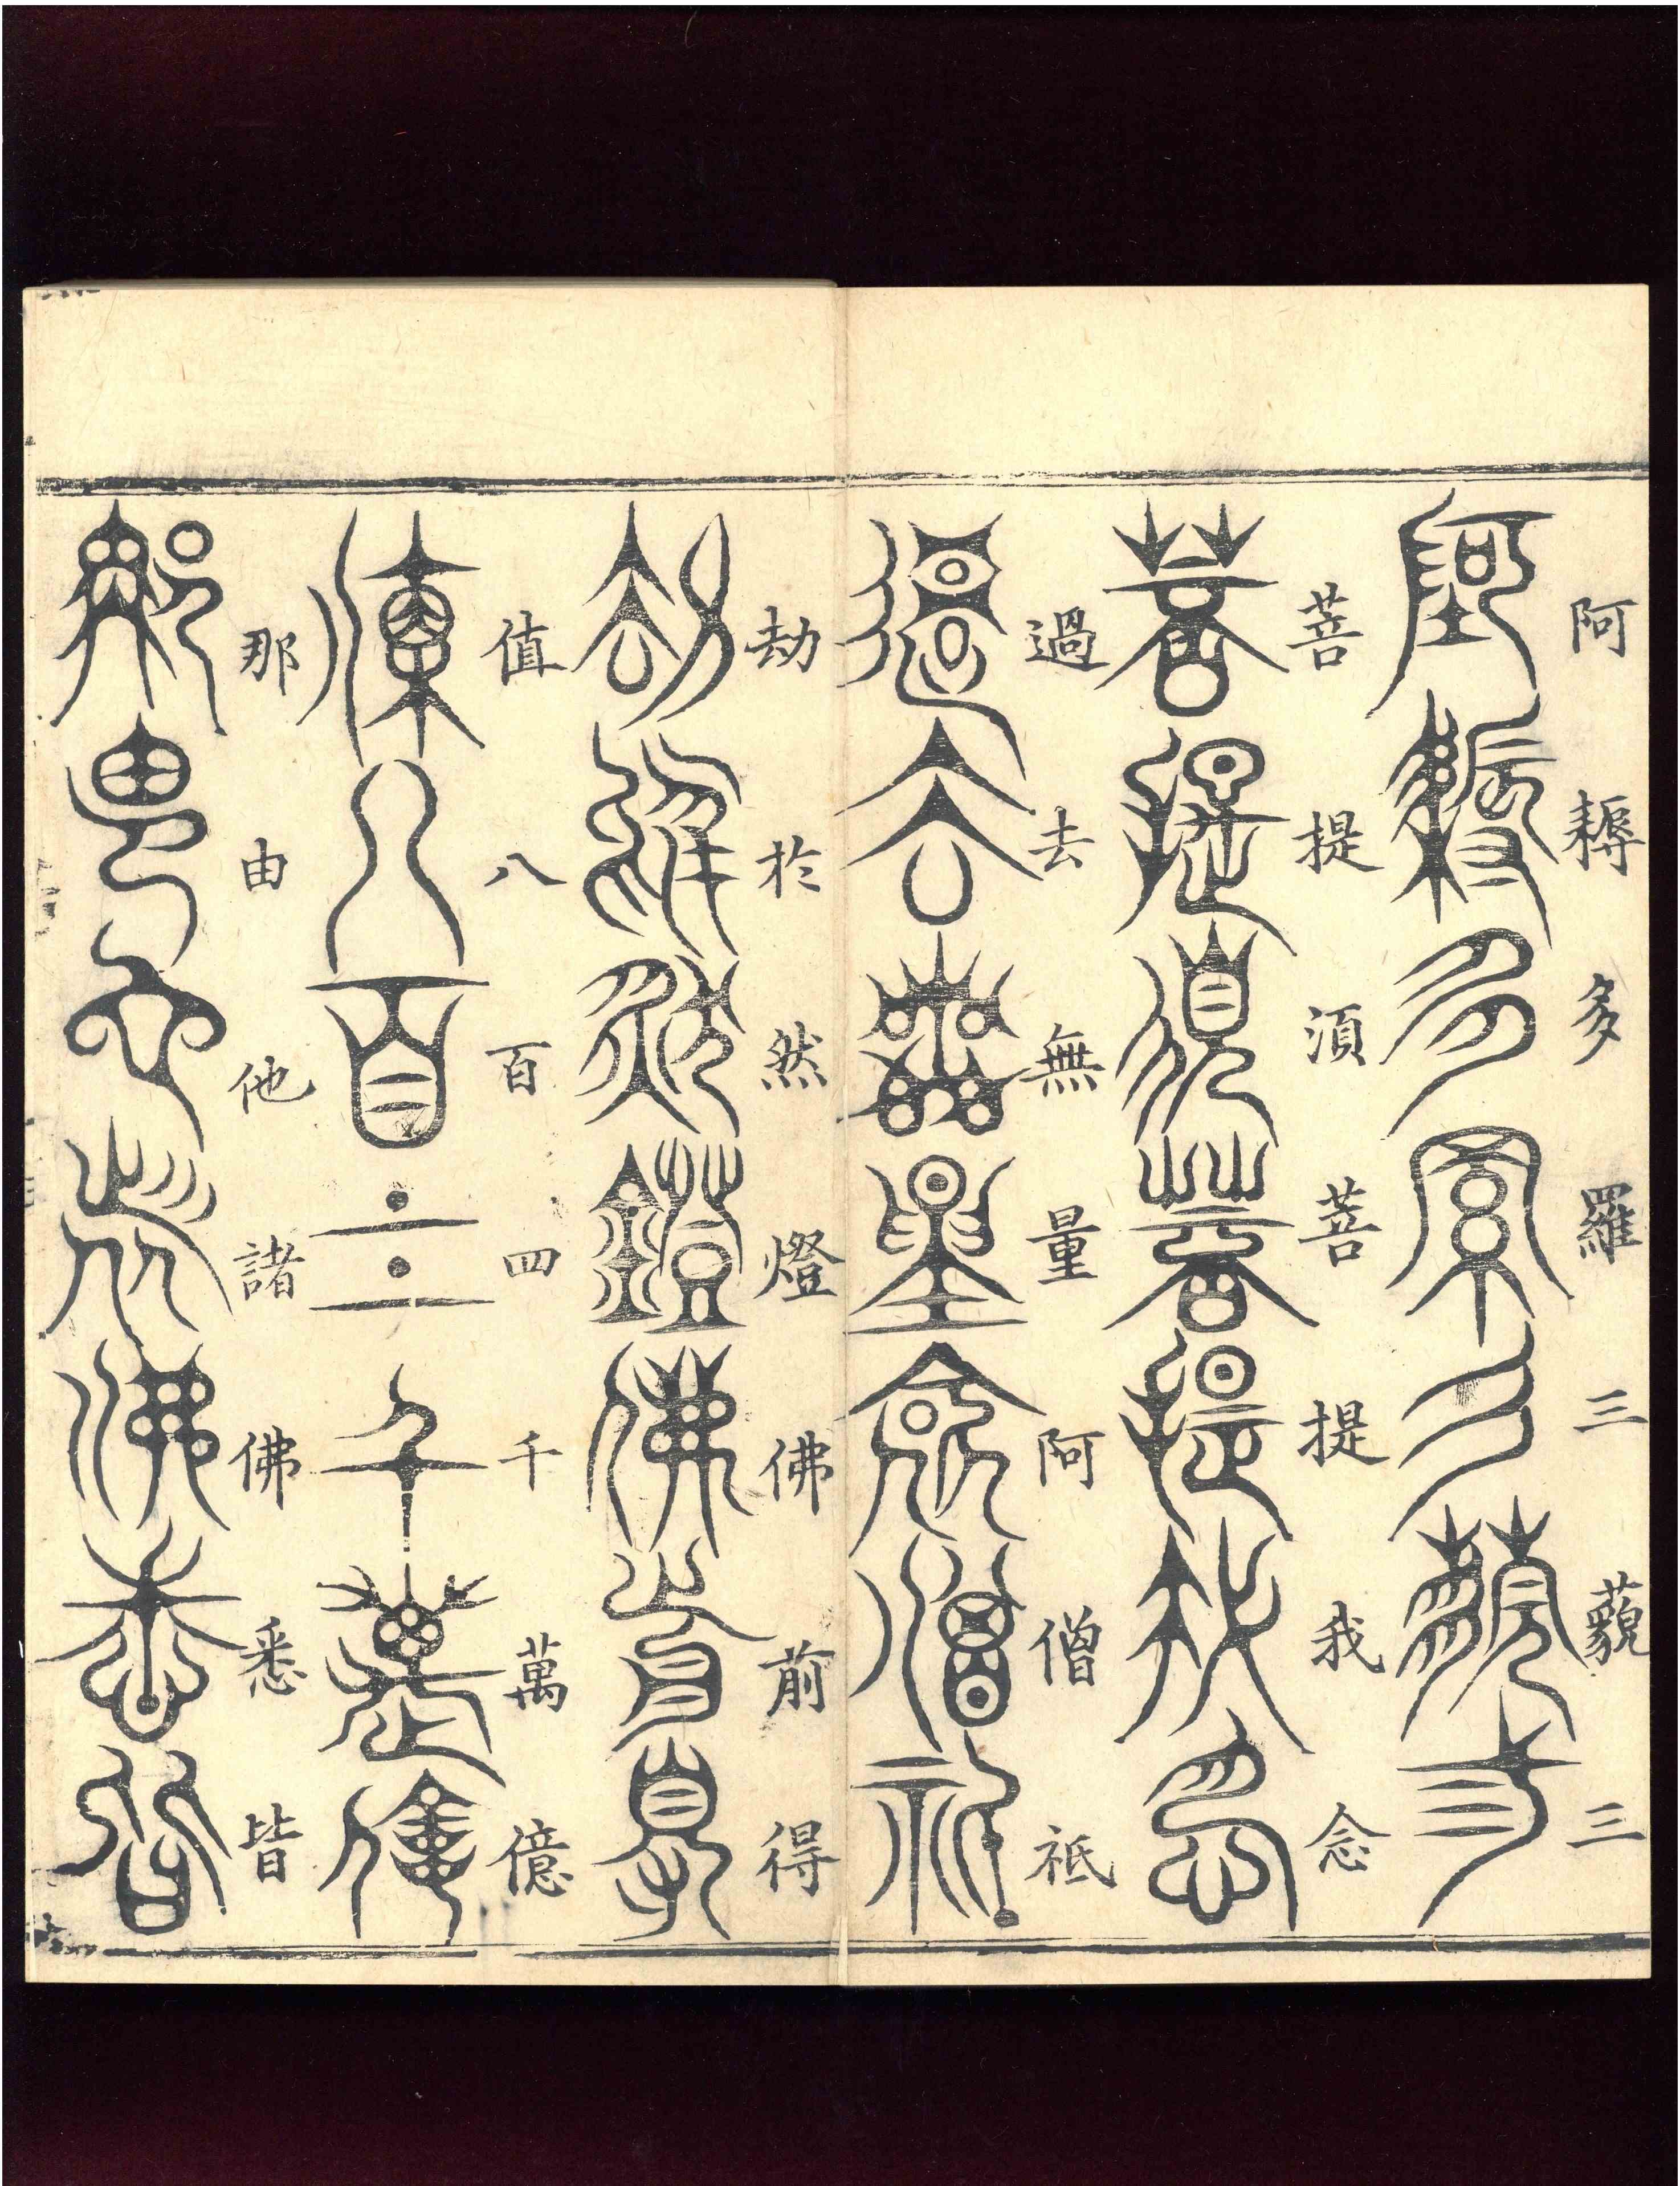 阿耨多羅三藐三
菩提湏菩提我念
過去無量阿僧祇
劫於然燈佛前得
值八百四千萬億
那由他諸佛悉皆